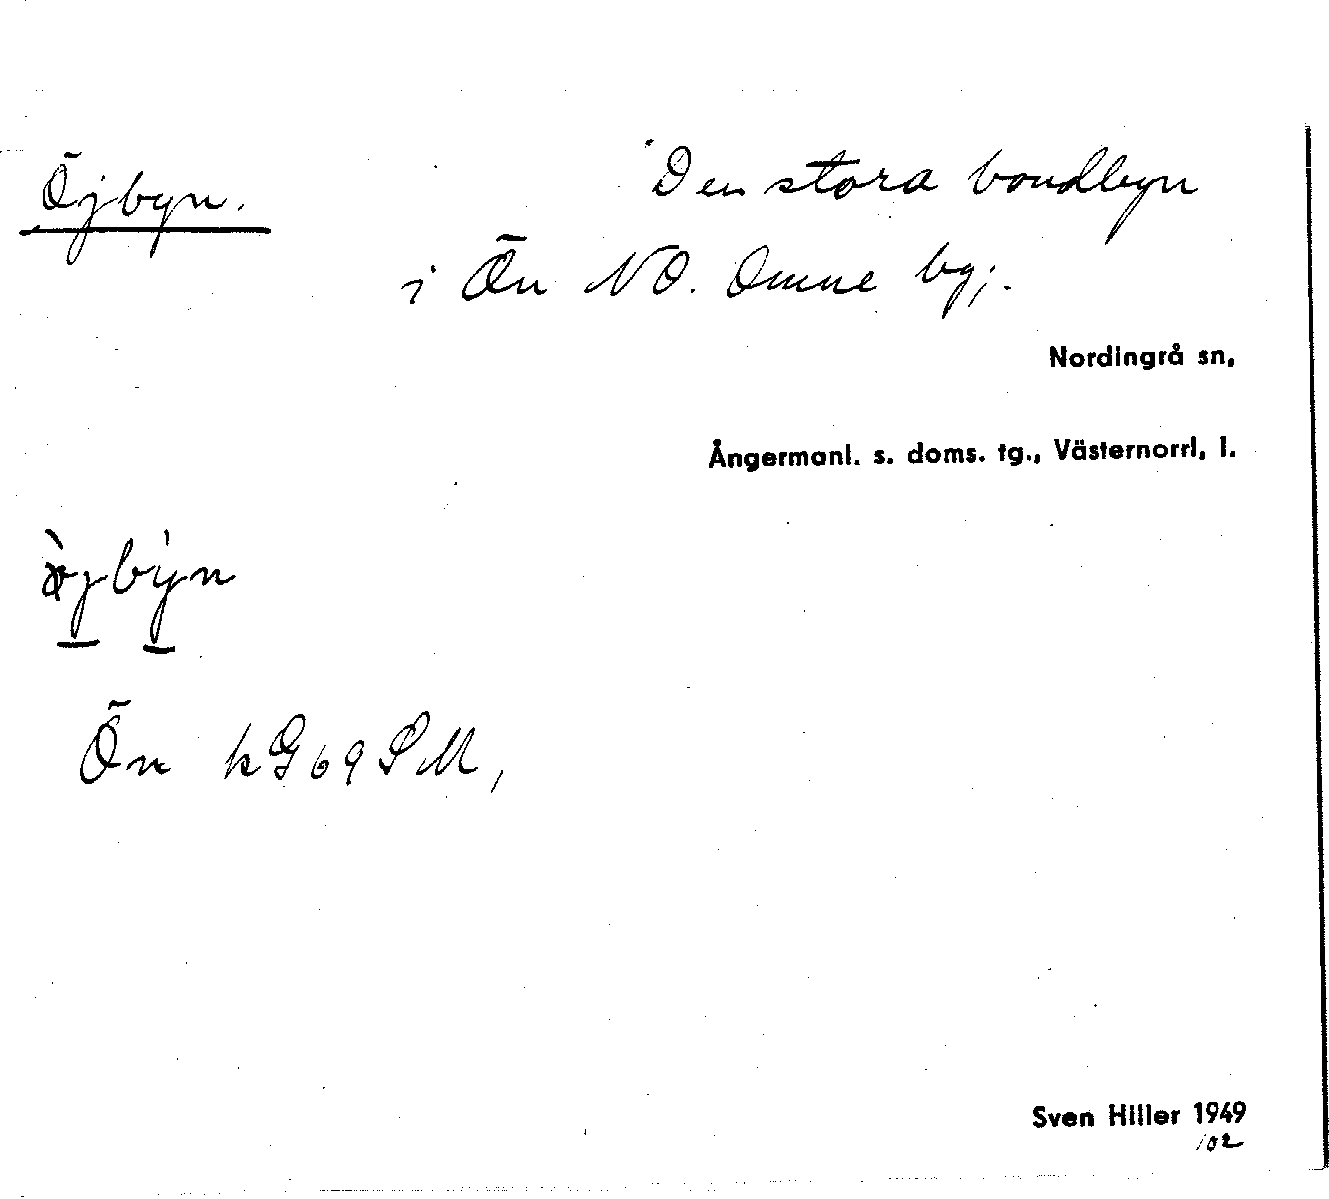 Öjbyn.
Den stora bondbyn
i Ön NO. Omne by;.
Nordingrå sn,
Ångermanl. s. doms. tg., Västernorrl. l.
Ön kG69SM,
Sven Hiller 1949
102